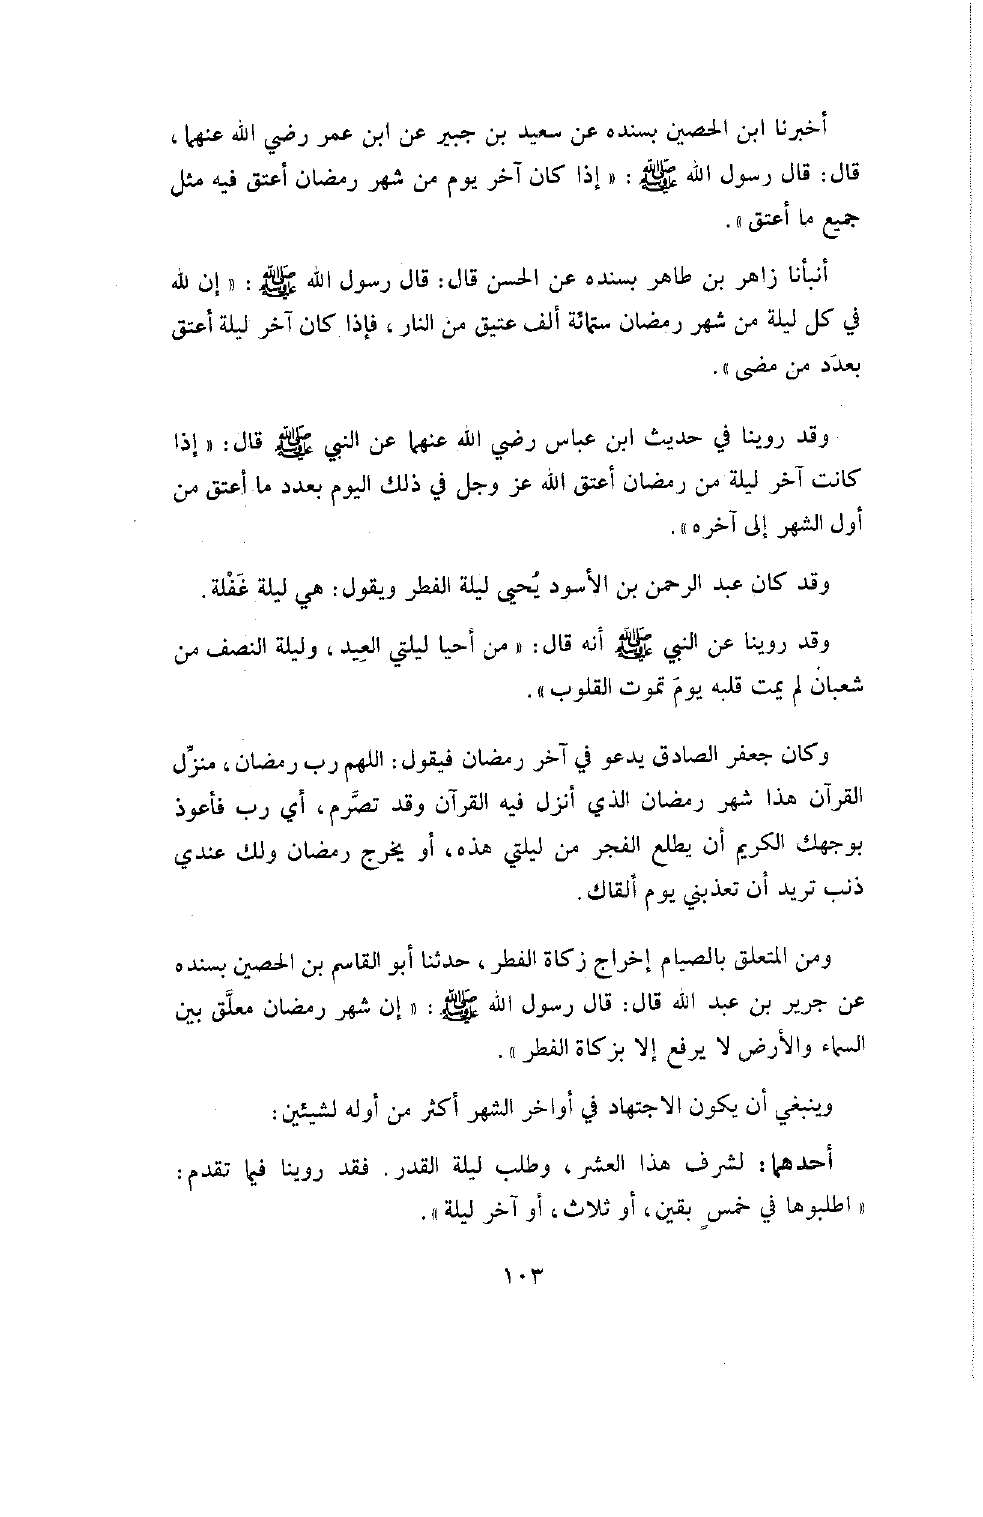 أخبرنا ابن الحصين بسنده عن سعيد بن جبير عن ابن عمر رضي الله عنهما ،
قال : قال رسول الله ﷺ : « إذا كان آخر يوم من شهر رمضان أعتق فيه مثل
جميع ما أعتق » .
أنبأنا زاهر بن طاهر بسنده عن الحسن قال : قال رسول الله ﷺ : « إن لله
في كل ليلة من شهر رمضان ستمائة ألف عتيق من النار ، فإذا كان آخر ليلة أعتق
بعدَد من مضى » .
وقد روينا في حديث ابن عباس رضي الله عنهما عن النبي ﷺ قال : « إذا
كانت آخر ليلة من رمضان أعتق الله عز وجل في ذلك اليوم بعدد ما أعتق من
أول الشهر إلى آخره » .
وقد كان عبد الرحمن بن الأسود يُحيي ليلة الفطر ويقول : هي ليلة غَفْلة .
وقد روينا عن النبي ﷺ أنه قال : « من أحيا ليلتي العيد ، وليلة النصف من
شعبان لم يمت قلبه يومَ تموت القلوب » .
وكان جعفر الصادق يدعو في آخر رمضان فيقول : اللهم رب رمضان ، منزِّل
القرآن هذا شهر رمضان الذي أنزل فيه القرآن وقد تصرَّم ، أي رب فأعوذ
بوجهك الكريم أن يطلع الفجر من ليلتي هذه ، أو يخرج رمضان ولك عندي
ذنب تريد أن تعذبني يوم ألقاك .
ومن المتعلق بالصيام إخراج زكاة الفطر ، حدثنا أبو القاسم بن الحصين بسنده
عن جرير بن عبد الله قال : قال رسول الله ﷺ : « إن شهر رمضان معلَّق بين
السماء والأرض لا يرفع إلا بزكاة الفطر » .
وينبغي أن يكون الاجتهاد في أواخر الشهر أكثر من أوله لشيئين :
أحدهما : لشرف هذا العشر ، وطلب ليلة القدر . فقد روينا فيما تقدم :
« اطلبوها في خمسٍ بقين ، أو ثلاث ، أو آخر ليلة » .
١٠٣